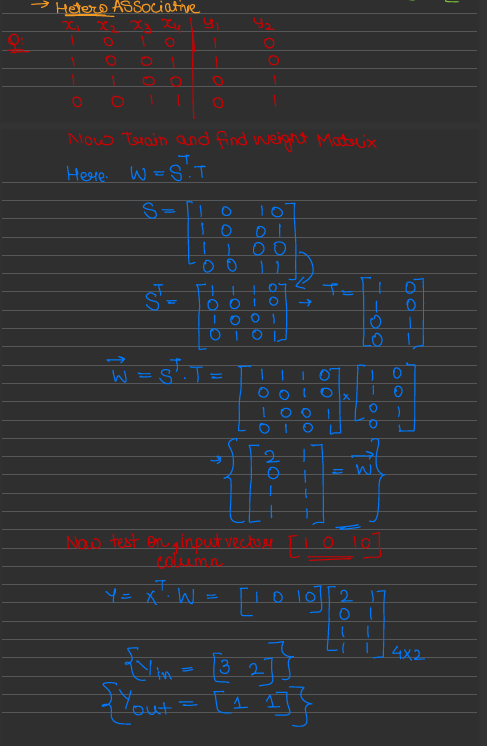 → Hetero ASSociative
x₁ x₂ x₃ x₄ | y₁ y₂
Q: 1 0 1 0 | 1 0
1 0 0 1 | 1 0
1 1 0 0 | 0 1
0 0 1 1 | 0 1
Now Train and find weight Matrix
Here: W = Sᵀ.T
S = [1 0 1 0
1 0 0 1
1 1 0 0
0 0 1 1]
Sᵀ = [1 1 1 0 → T = [1 0
0 0 1 0 1 0
1 0 0 1 0 1
0 1 0 1] 0 1]
W = Sᵀ.T = [1 1 1 0 × [1 0
0 0 1 0 1 0
1 0 0 1 0 1
0 1 0 1] 0 1]
→ { [2 1
0 1
1 1
1 1] = W }
Now test on, Input vector [1 0 1 0]
column
Y = Xᵀ.W = [1 0 1 0] [2 1
0 1
1 1
1 1] 4x2
{Yin = [3 2]}
{Yout = [1 1]}